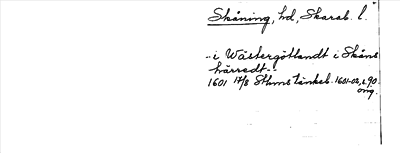 Skåning, hd, Skarab. l.
..i Wästergötlandt i Skåns
härredt..
1601 17/8 Sthms tänkeb. 1601-02, s. 90
orig.